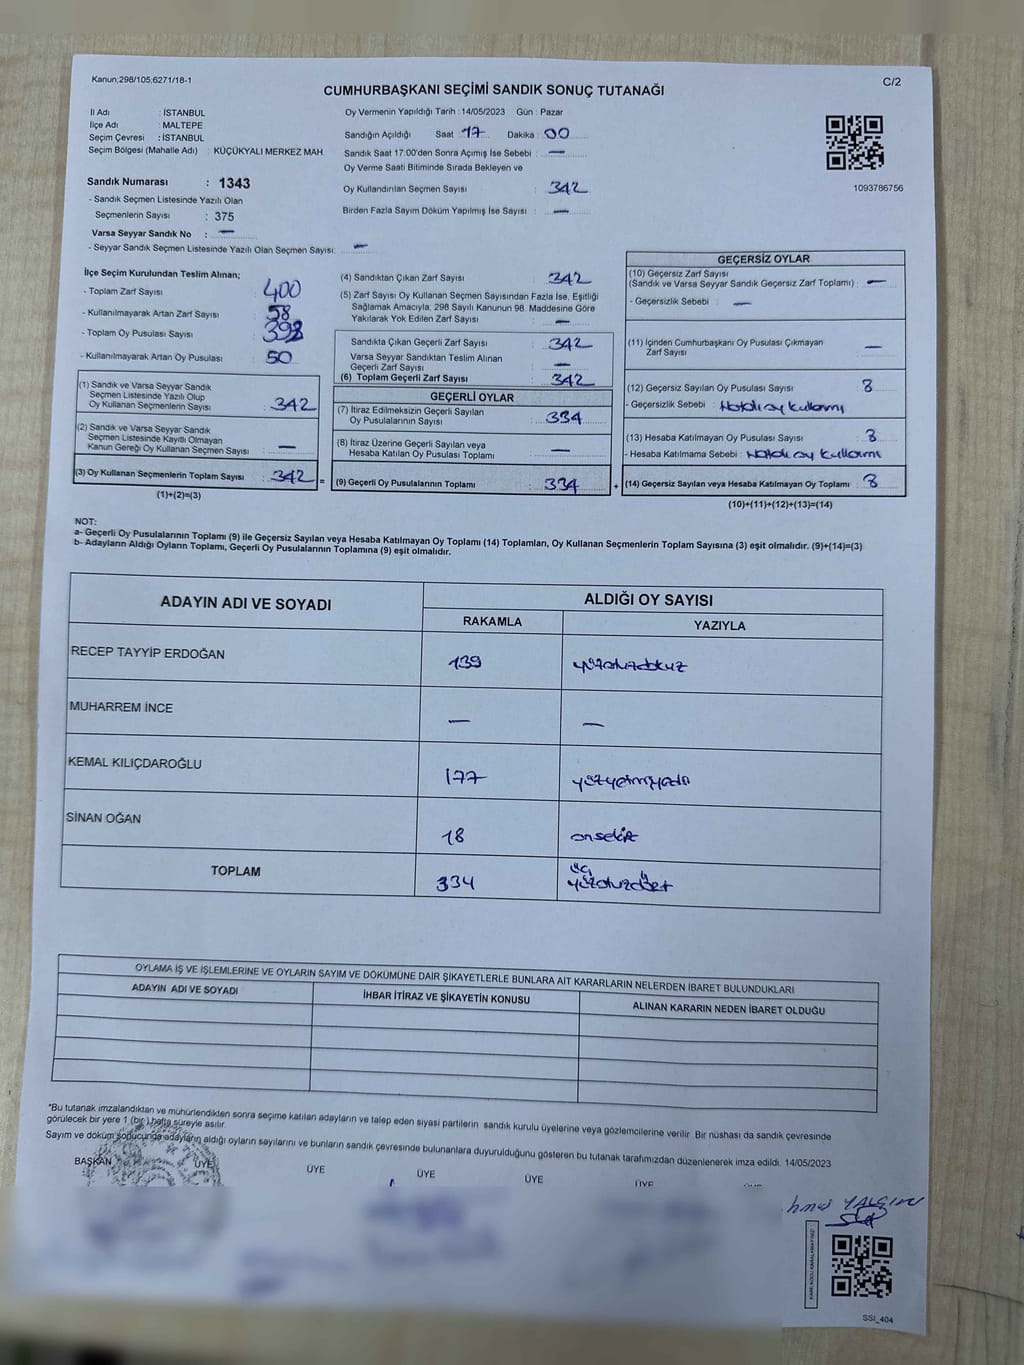 Kanun;298/105;6271/18-1
C/2
CUMHURBAŞKANI SEÇİMİ SANDIK SONUÇ TUTANAĞI
İl Adı : İSTANBUL
İlçe Adı : MALTEPE
Seçim Çevresi : İSTANBUL
Seçim Bölgesi (Mahalle Adı) : KÜÇÜKYALI MERKEZ MAH.
Sandık Numarası : 1343
- Sandık Seçmen Listesinde Yazılı Olan
Seçmenlerin Sayısı : 375
Varsa Seyyar Sandık No : —
- Seyyar Sandık Seçmen Listesinde Yazılı Olan Seçmen Sayısı: —
Oy Vermenin Yapıldığı Tarih : 14/05/2023 Gün : Pazar
Sandığın Açıldığı Saat : 17 Dakika : 00
Sandık Saat 17:00'den Sonra Açımış İse Sebebi : —
Oy Verme Saati Bitiminde Sırada Bekleyen ve
Oy Kullandırılan Seçmen Sayısı : 342
Birden Fazla Sayım Döküm Yapılmış İse Sayısı : —
1093786756
İlçe Seçim Kurulundan Teslim Alınan;
- Toplam Zarf Sayısı : 400
- Kullanılmayarak Artan Zarf Sayısı : 58
- Toplam Oy Pusulası Sayısı : 392
- Kullanılmayarak Artan Oy Pusulası : 50
(1) Sandık ve Varsa Seyyar Sandık
Seçmen Listesinde Yazılı Olup
Oy Kullanan Seçmenlerin Sayısı : 342
(2) Sandık ve Varsa Seyyar Sandık
Seçmen Listesinde Kayıtlı Olmayan
Kanun Gereği Oy Kullanan Seçmen Sayısı : —
(3) Oy Kullanan Seçmenlerin Toplam Sayısı : 342 =
(1)+(2)=(3)
(4) Sandıktan Çıkan Zarf Sayısı : 342
(5) Zarf Sayısı Oy Kullanan Seçmen Sayısından Fazla İse, Eşitliği
Sağlamak Amacıyla, 298 Sayılı Kanunun 98. Maddesine Göre
Yakılarak Yok Edilen Zarf Sayısı : —
Sandıkta Çıkan Geçerli Zarf Sayısı : 342
Varsa Seyyar Sandıktan Teslim Alınan
Geçerli Zarf Sayısı : —
(6) Toplam Geçerli Zarf Sayısı : 342
GEÇERLİ OYLAR
(7) İtiraz Edilmeksizin Geçerli Sayılan
Oy Pusulasının Sayısı : 334
(8) İtiraz Üzerine Geçerli Sayılan veya
Hesaba Katılan Oy Pusulası Toplamı : —
(9) Geçerli Oy Pusulalarının Toplamı : 334 +
GEÇERSİZ OYLAR
(10) Geçersiz Zarf Sayısı
(Sandık ve Varsa Seyyar Sandık Geçersiz Zarf Toplamı) : —
- Geçersizlik Sebebi : —
(11) İçinden Cumhurbaşkanı Oy Pusulası Çıkmayan
Zarf Sayısı : —
(12) Geçersiz Sayılan Oy Pusulası Sayısı : 8
- Geçersizlik Sebebi : Hatalı oy kullanımı
(13) Hesaba Katılmayan Oy Pusulası Sayısı : 8
- Hesaba Katılmama Sebebi : Hatalı oy kullanımı
(14) Geçersiz Sayılan veya Hesaba Katılmayan Oy Toplamı : 8
(10)+(11)+(12)+(13)=(14)
NOT:
a- Geçerli Oy Pusulalarının Toplamı (9) ile Geçersiz Sayılan veya Hesaba Katılmayan Oy Toplamı (14) Toplamları, Oy Kullanan Seçmenlerin Toplam Sayısına (3) eşit olmalıdır. (9)+(14)=(3)
b- Adayların Aldığı Oyların Toplamı, Geçerli Oy Pusulalarının Toplamına (9) eşit olmalıdır.
ADAYIN ADI VE SOYADI
ALDIĞI OY SAYISI
RAKAMLA YAZIYLA
RECEP TAYYİP ERDOĞAN 139 yüzotuzdokuz
MUHARREM İNCE — —
KEMAL KILIÇDAROĞLU 177 yüzyetmişyedi
SİNAN OĞAN 18 onsekiz
TOPLAM 334 üç yüzotuzdört
OYLAMA İŞ VE İŞLEMLERİNE VE OYLARIN SAYIM VE DÖKÜMÜNE DAİR ŞİKAYETLERLE BUNLARA AİT KARARLARIN NELERDEN İBARET BULUNDUKLARI
ADAYIN ADI VE SOYADI İHBAR İTİRAZ VE ŞİKAYETİN KONUSU ALINAN KARARIN NEDEN İBARET OLDUĞU
*Bu tutanak imzalandıktan ve mühürlendikten sonra seçime katılan adayların ve talep eden siyasi partilerin sandık kurulu üyelerine veya gözlemcilerine verilir. Bir nüshası da sandık çevresinde
görülecek bir yere 1 (bir) hafta süreyle asılır.
Sayım ve döküm sonucunda adayların aldığı oyların sayılarını ve bunların sandık çevresinde bulunanlara duyurulduğunu gösteren bu tutanak tarafımızdan düzenlenerek imza edildi. 14/05/2023
BAŞKAN ÜYE ÜYE ÜYE ÜYE ÜYE
YALÇIN
SSI_404